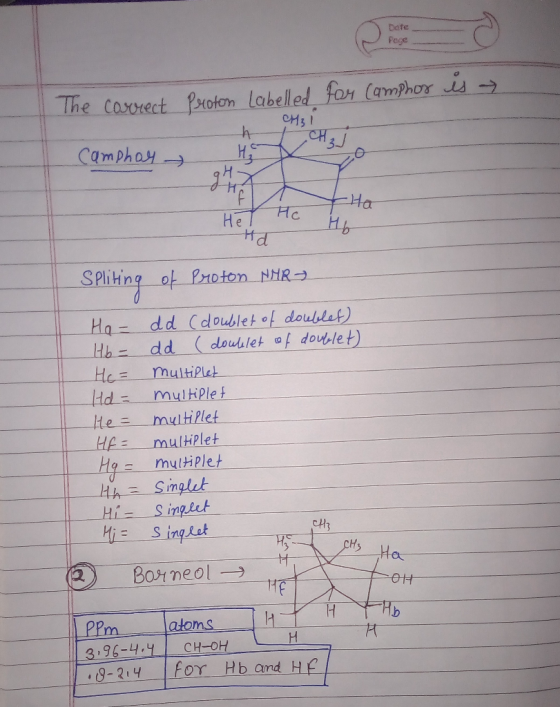 Date
Page
The correct Proton Labelled for Camphor is →
Camphor →
h
H3C
CH3 i
CH3 j
O
g H
H
f
He
Hd
Hc
Ha
Hb
Spliting of Proton NMR →
Ha = dd (doublet of doublet)
Hb = dd (doublet of doublet)
Hc = multiplet
Hd = multiplet
He = multiplet
Hf = multiplet
Hg = multiplet
Hh = Singlet
Hi = Singlet
Hj = Singlet
2 Borneol →
CH3
H3C
CH3
H
Ha
OH
Hf
H
H
H
Hb
H
PPm atoms
3.96-4.4 CH-OH
.9-2.4 for Hb and Hf